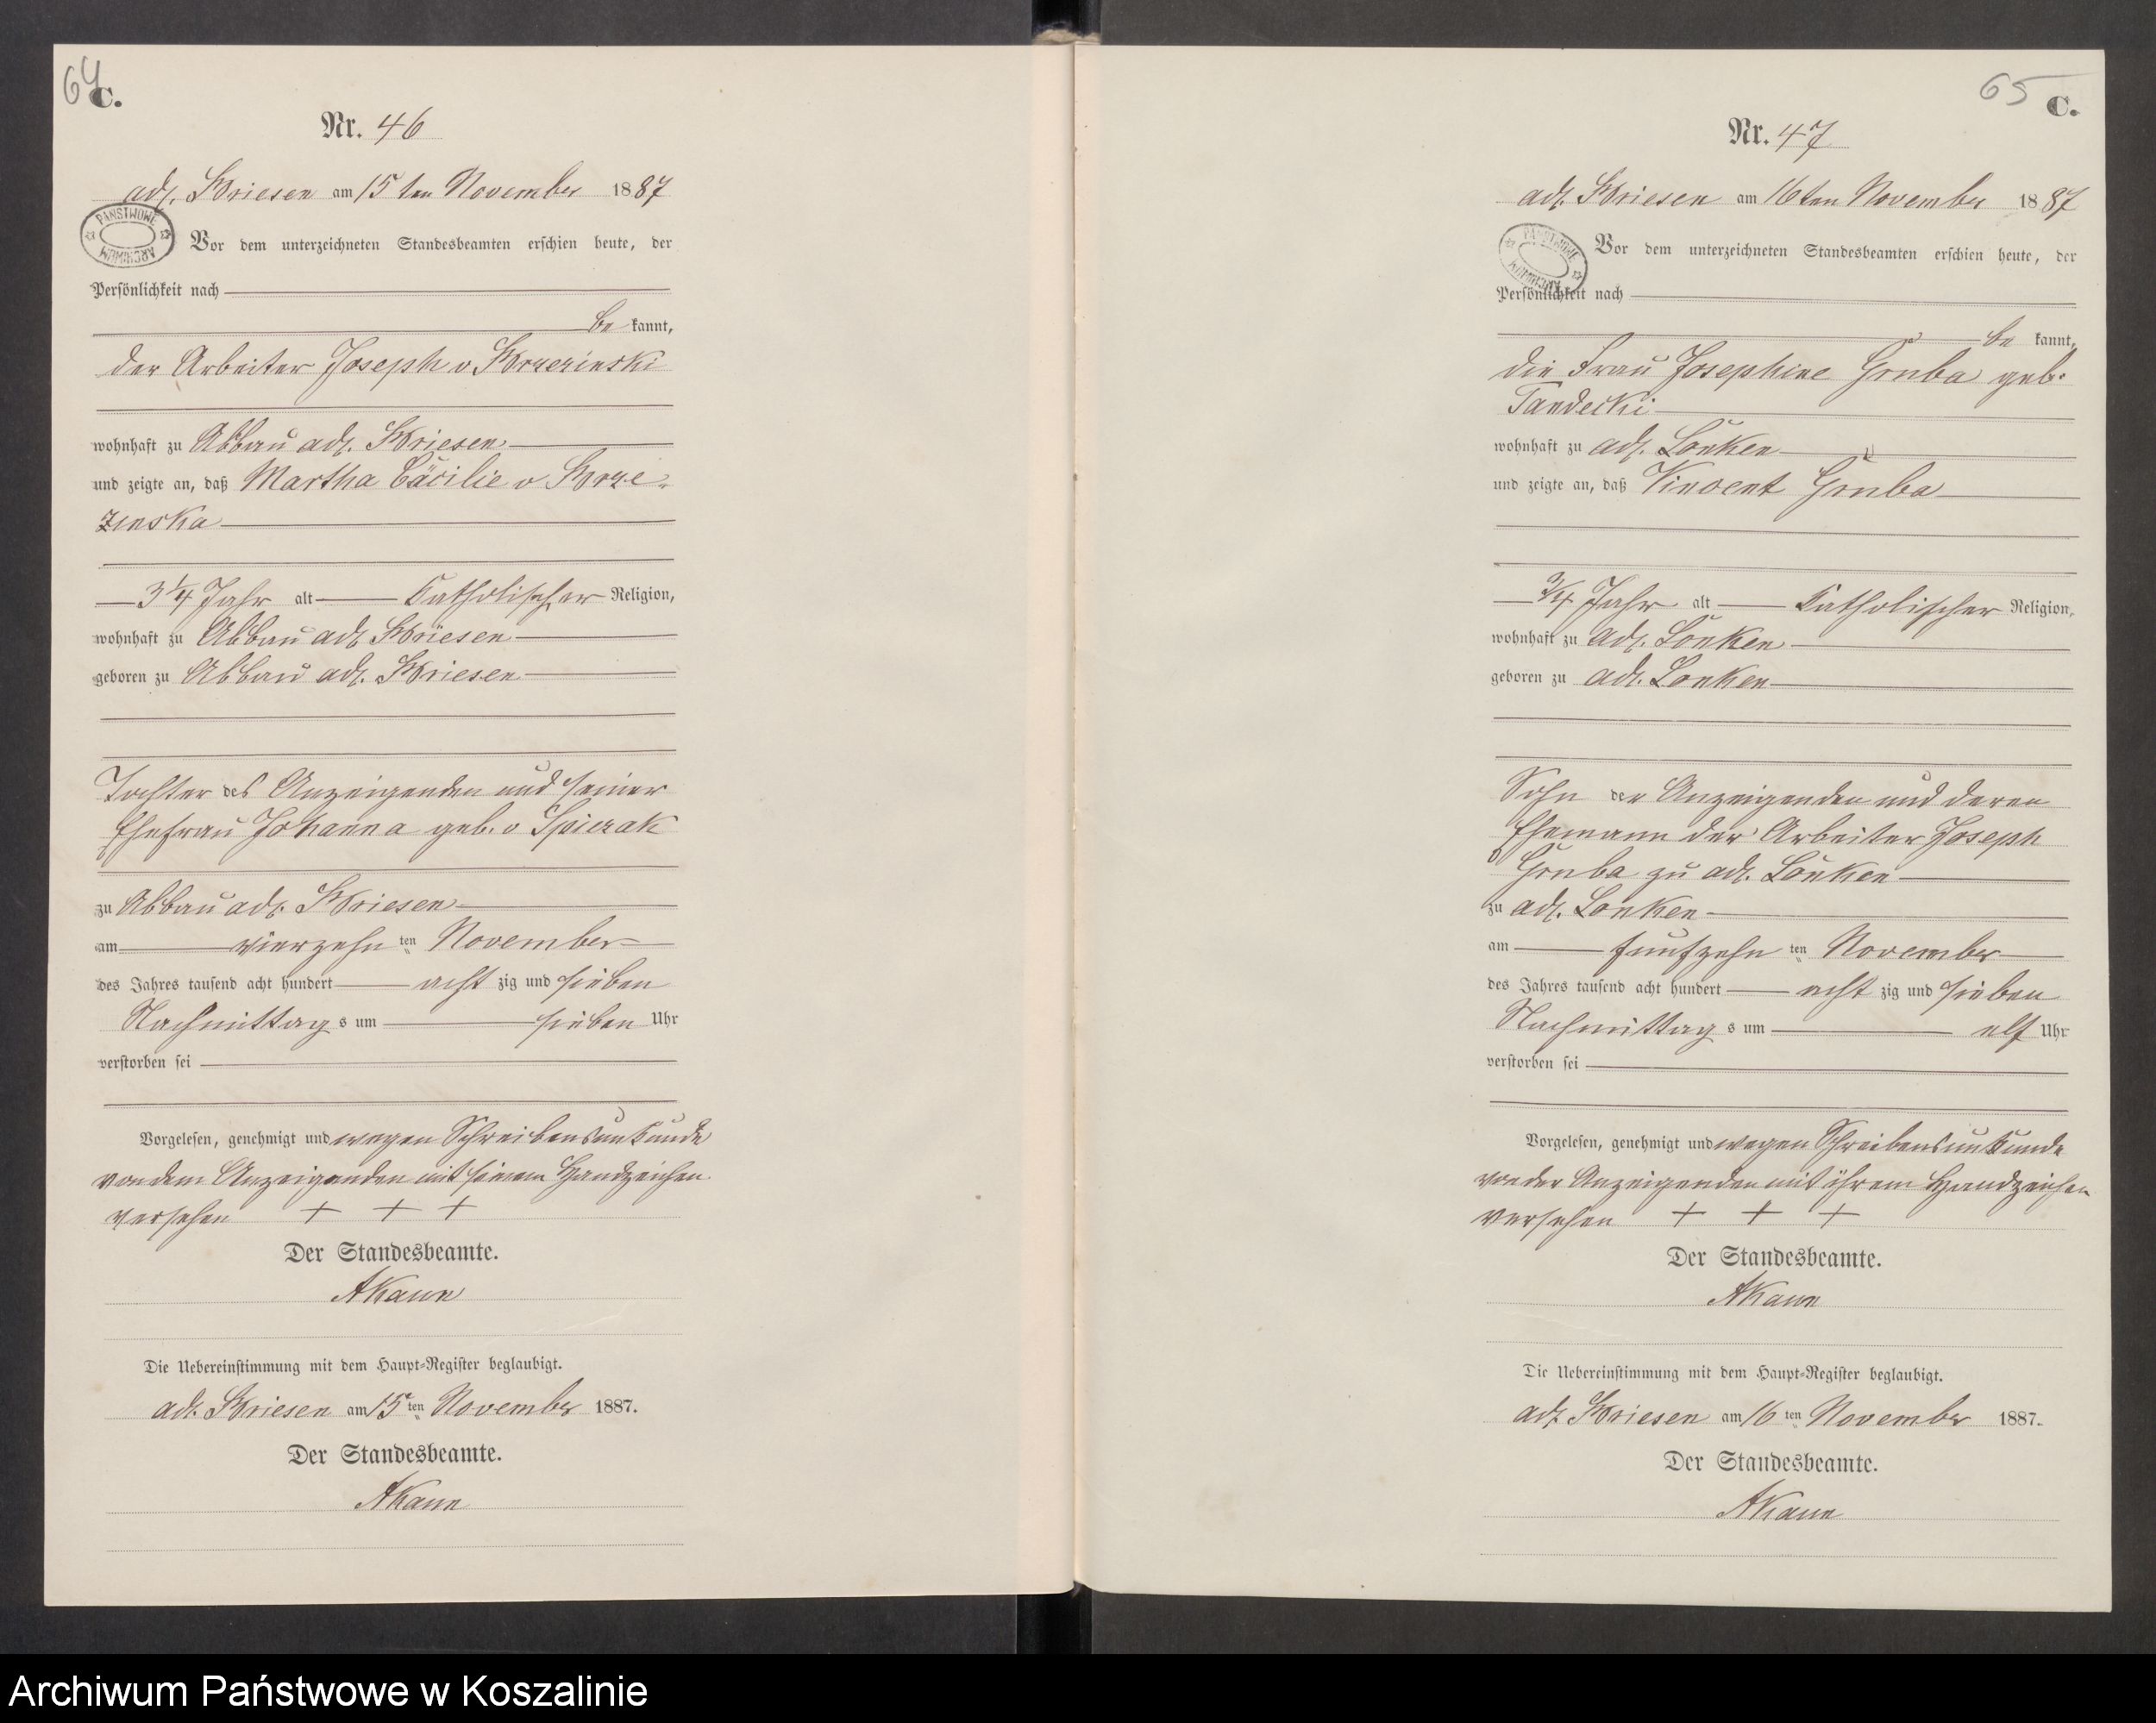 64
C.
Nr. 46
adl. Briesen am 15 ten November 1887
PAŃSTWOWE ARCHIWUM
Vor dem unterzeichneten Standesbeamten erschien heute, der
Persönlichkeit nach
be kannt,
der Arbeiter Joseph v
wohnhaft zu Abbau adl. Briesen
und zeigte an, daß Martha Cäcilie v
3 1/4 Jahr alt Catholischer Religion,
wohnhaft zu Abbau adl. Briesen
geboren zu Abbau adl. Briesen
Tochter des Anzeigenden und seiner
Ehefrau Johanna geb. v
zu Abbau adl. Briesen
am vierzehn ten November
des Jahres tausend acht hundert acht zig und sieben
Nachmittag s um sieben Uhr
verstorben sei
Vorgelesen, genehmigt und wegen Schreibensunkunde
von dem Anzeigenden mit seinem Handzeichen
versehen + + +
Der Standesbeamte.
Die Uebereinstimmung mit dem Haupt-Register beglaubigt.
adl. Briesen am 15 ten November 1887.
Der Standesbeamte.
65
C.
Nr. 47
adl. Briesen am 16 ten November 1887
PAŃSTWOWE ARCHIWUM
Vor dem unterzeichneten Standesbeamten erschien heute, der
Persönlichkeit nach
be kannt,
die Frau Josephine Gruba geb.
Tandecki
wohnhaft zu adl. Lonken
und zeigte an, daß Vincent Gruba
3/4 Jahr alt Catholischer Religion,
wohnhaft zu adl. Lonken
geboren zu adl. Lonken
Sohn der Anzeigenden und deren
Ehemann der Arbeiter Joseph
Gruba zu adl. Lonken
zu adl. Lonken
am fünfzehn ten November
des Jahres tausend acht hundert acht zig und sieben
Nachmittag s um elf Uhr
verstorben sei
Vorgelesen, genehmigt und wegen Schreibensunkunde
von der Anzeigenden mit ihrem Handzeichen
versehen + + +
Der Standesbeamte.
Die Uebereinstimmung mit dem Haupt-Register beglaubigt.
adl. Briesen am 16 ten November 1887.
Der Standesbeamte.
Archiwum Państwowe w Koszalinie